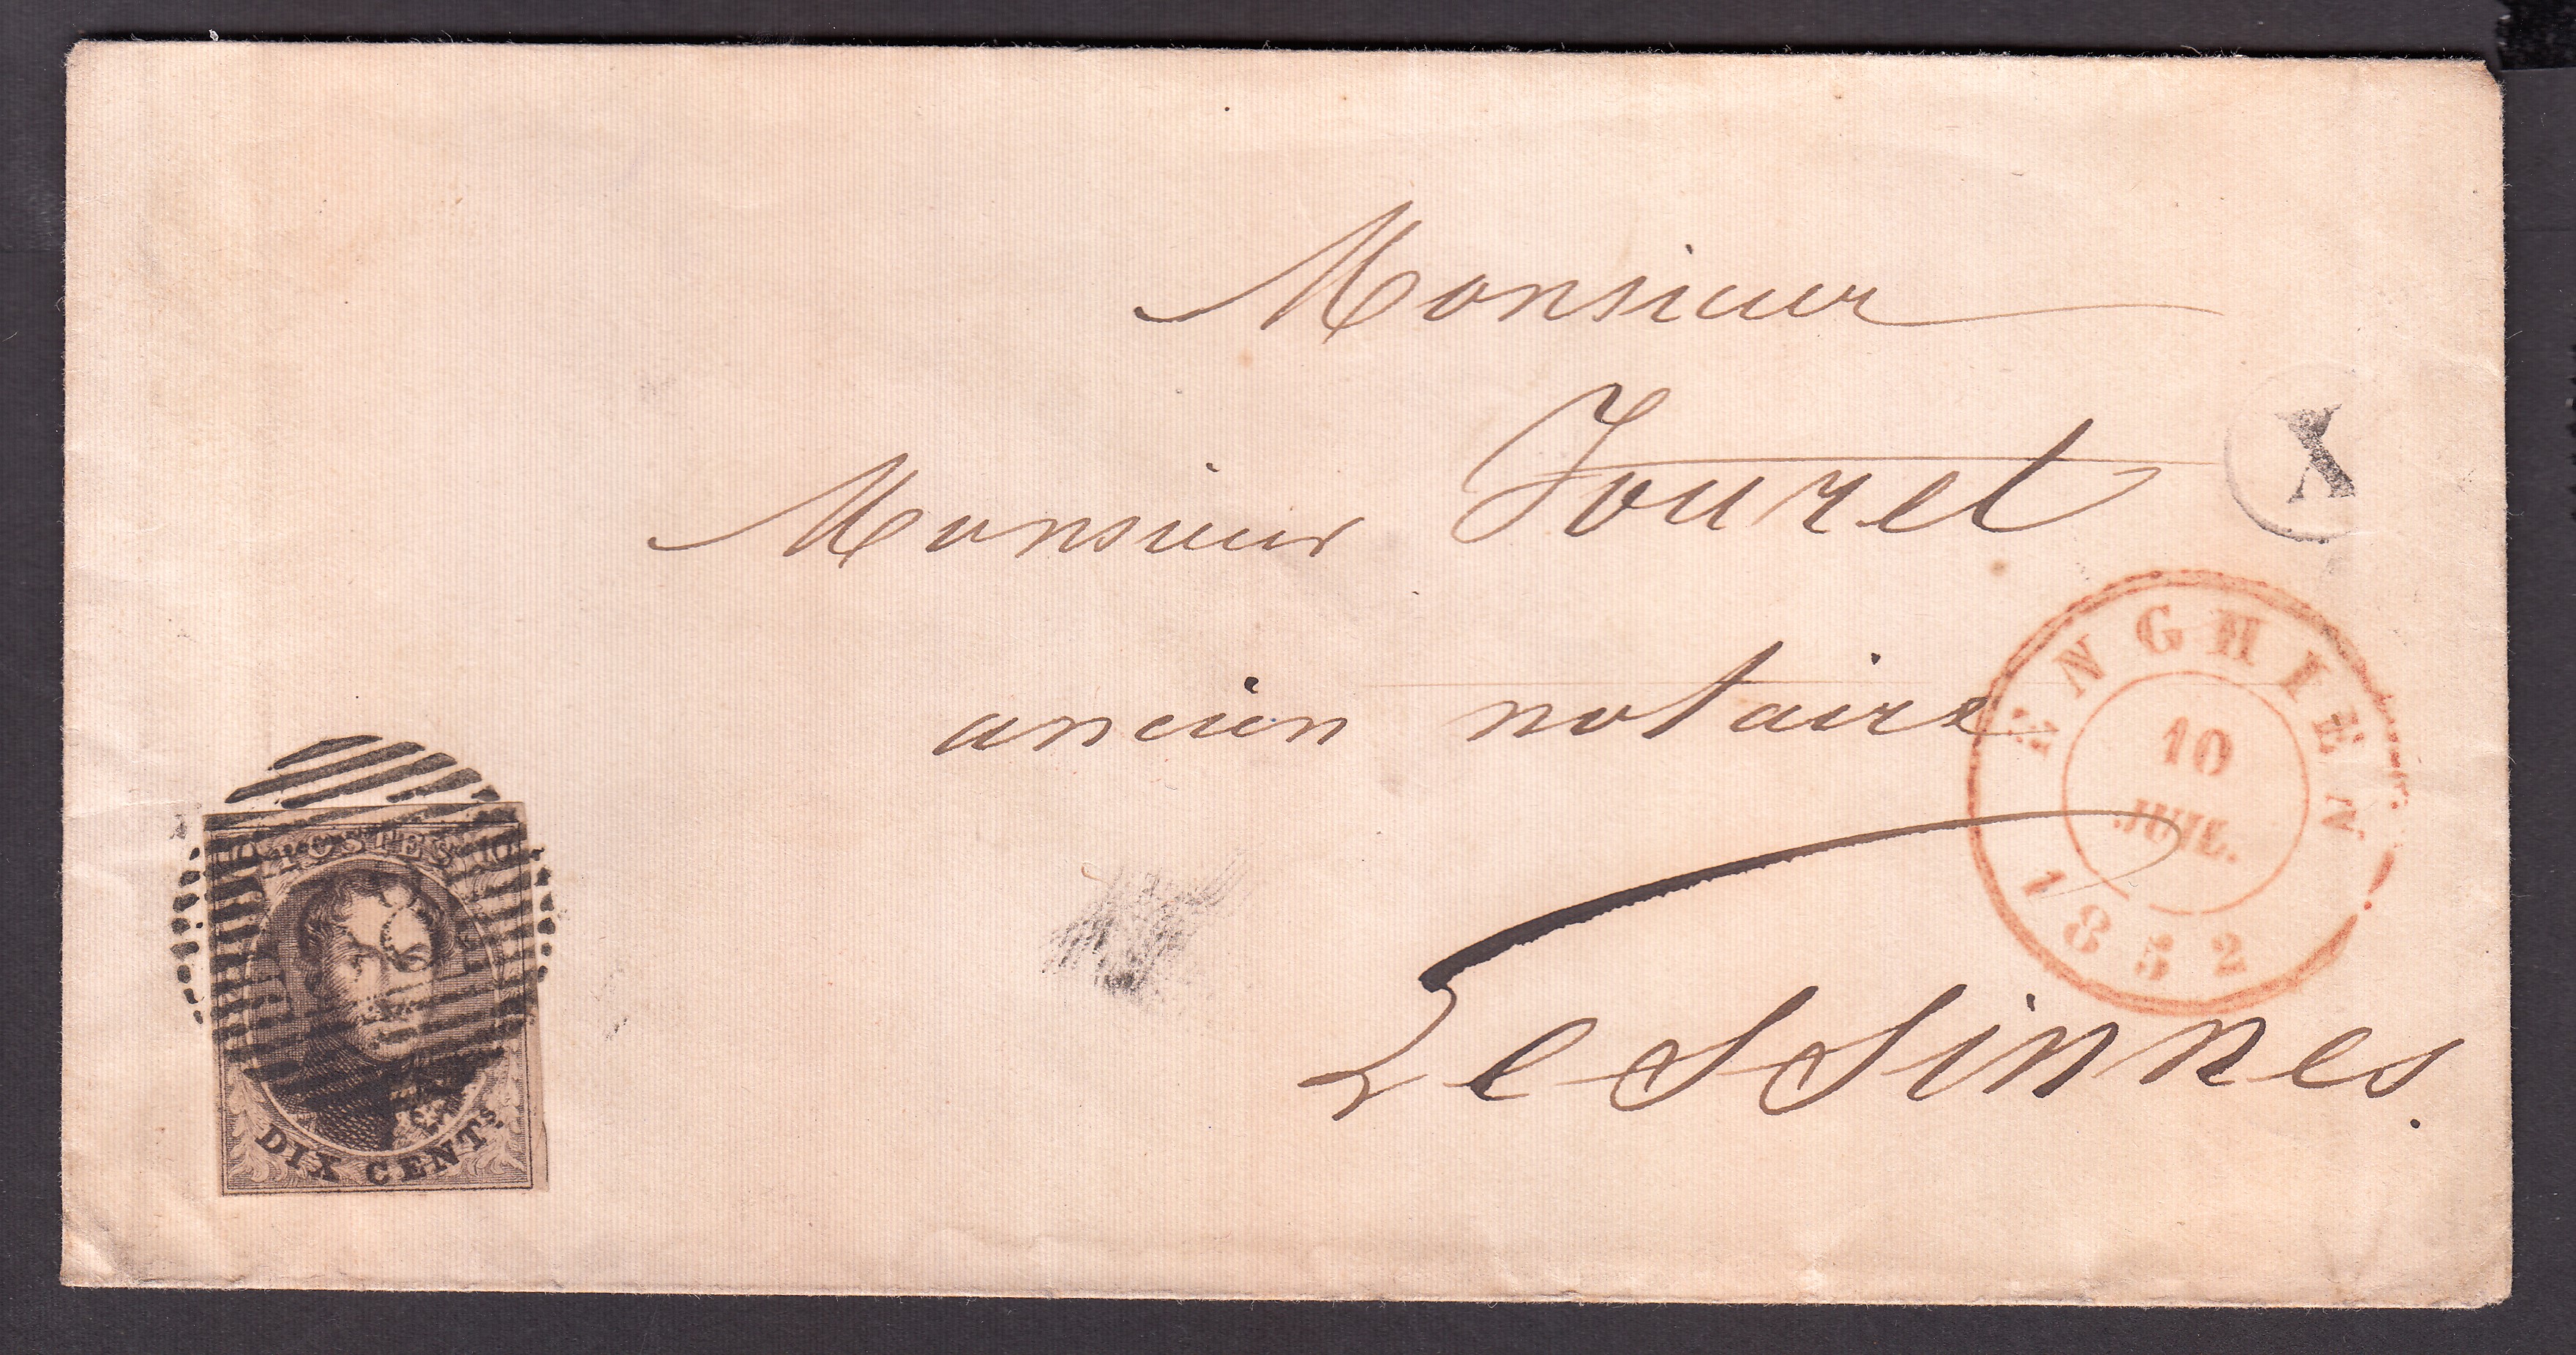 Monsieur
Monsieur Jouret
X
ancien notaire
ENGHIEN.
10
JUIL.
1852
Lessinnes.
10 POSTES 10
DIX CENTS.